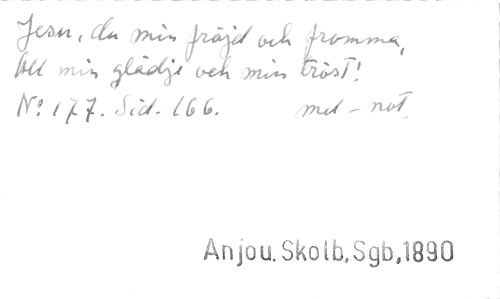 Jesu, du min fröjd och fromma,
All min glädje och min tröst!
No: 177. Sid. 166. med - not.
Anjou. Skolb, Sgb, 1890